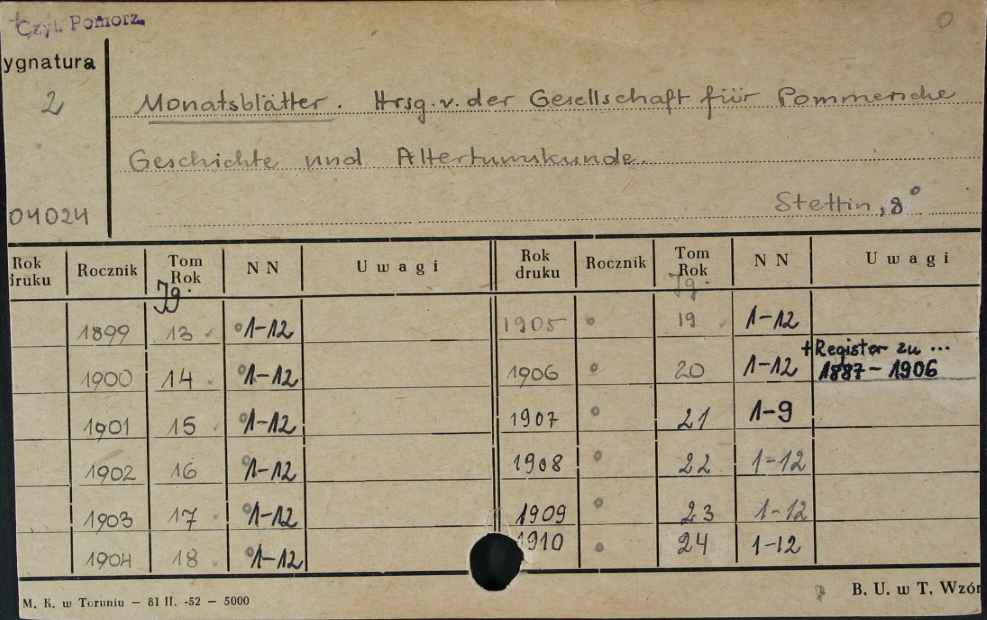 Czyt. Pomorz.
ygnatura
2
Monatsblätter. Hrsg. v. der Gesellschaft für Pommersche
Geschichte und Altertumskunde.
Stettin, 8°
04024
Rok druku Rocznik Tom Rok NN Uwagi Rok druku Rocznik Tom Rok NN Uwagi
Jg. Jg.
1899 13 1-12 1905 19 1-12
1900 14 1-12 1906 20 1-12 + Register zu ... 1887-1906
1901 15 1-12 1907 21 1-9
1902 16 1-12 1908 22 1-12
1903 17 1-12 1909 23 1-12
1904 18 1-12 1910 24 1-12
M. K. w Toruniu — 81 II. -52 — 5000
B. U. w T. Wzór